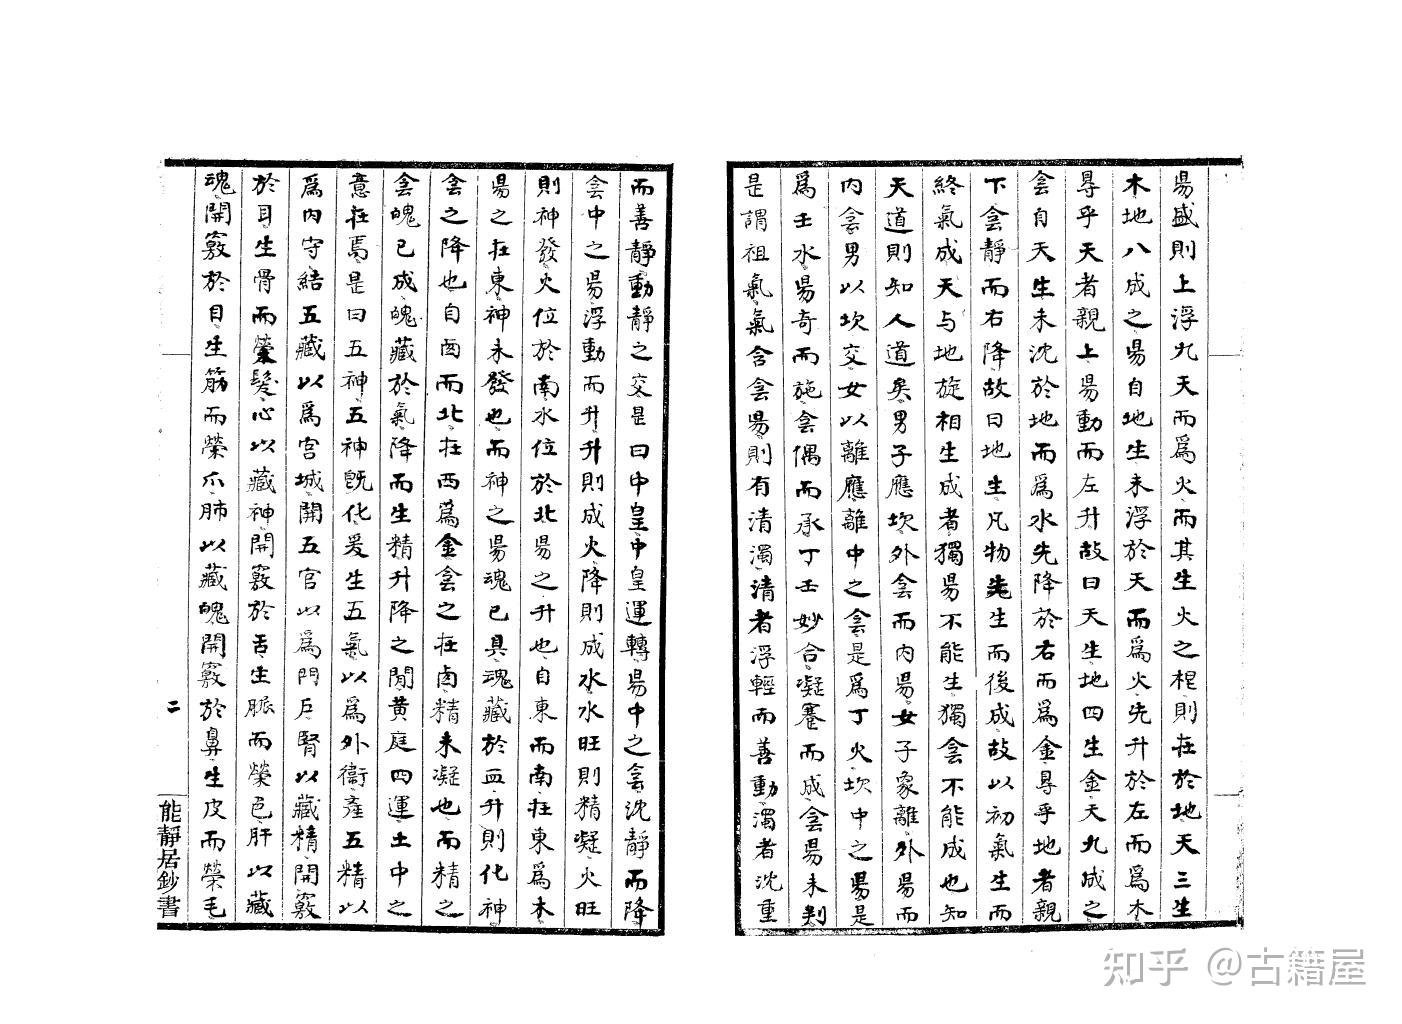 昜盛則上浮九天而爲火而其生火之根則在於地天三生
木地八成之昜自地生未浮於天而爲火先升於左而爲木
㝵乎天者親上昜動而左升故曰天生地四生金天九成之
侌自天生未沈於地而爲水先降於右而爲金㝵乎地者親
下侌靜而右降故曰地生凡物先生而後成故以初氣生而
終氣成天与地旋相生成者獨昜不能生獨侌不能成也知
天道則知人道矣男子應坎外侌而内昜女子象離外昜而
内侌男以坎交女以離應離中之侌是爲丁火坎中之昜是
爲壬水昜奇而施侌偶而承丁壬妙合凝蹇而成侌昜未判
是謂祖氣氣含侌昜則有清濁清者浮輕而善動濁者沈重
而善靜動靜之交是曰中皇中皇運轉昜中之侌沈靜而降
侌中之昜浮動而升升則成火降則成水水旺則精凝火旺
則神發火位於南水位於北昜之升也自東而南在東爲木
昜之在東神未發也而神之昜魂已具魂藏於血升則化神
侌之降也自卤而北在西爲金侌之在卤精未凝也而精之
侌魄已成魄藏於氣降而生精升降之間黄庭四運土中之
意在焉是曰五神五神既化爰生五氣以爲外衞產五精以
爲内守結五藏以爲宫城開五官以爲門戶腎以藏精開竅
於耳生骨而榮髮心以藏神開竅於舌生脈而榮色肝以藏
魂開竅於目生筋而榮爪肺以藏魄開竅於鼻生皮而榮毛
二
能靜居鈔書
知乎 @古籍屋